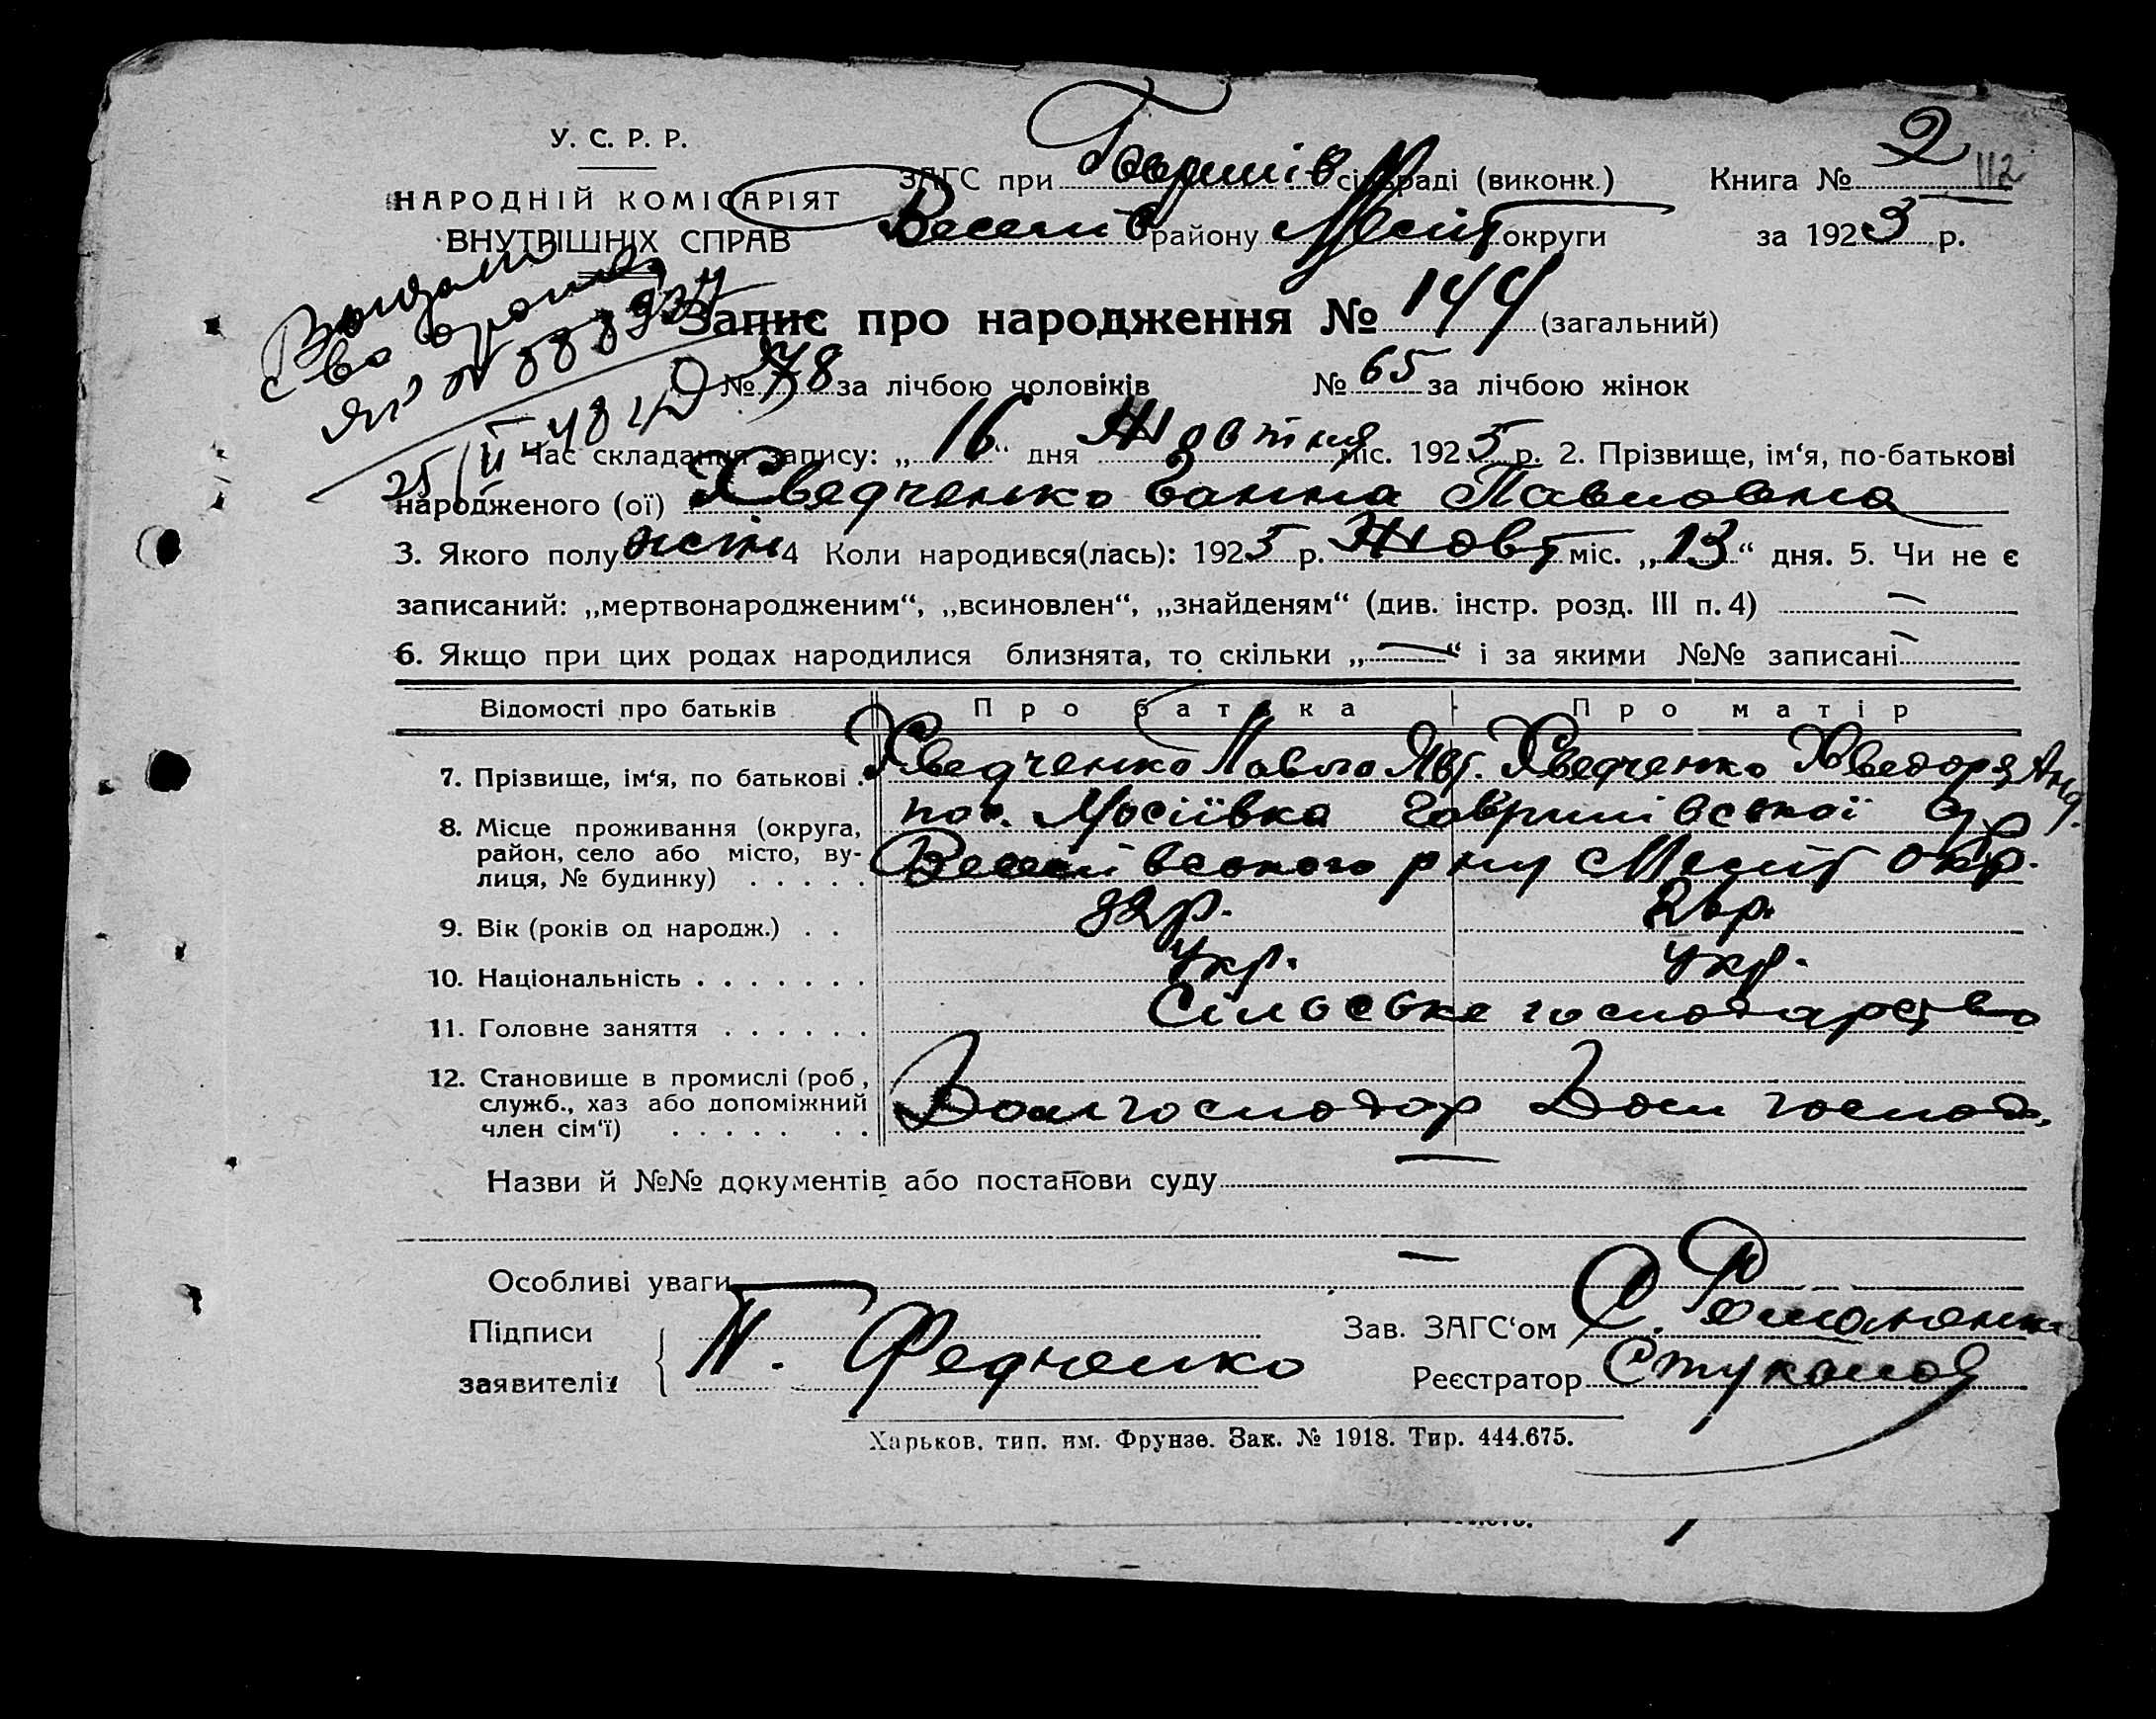 У. С. Р. Р.
НАРОДНІЙ КОМІСАРІЯТ
ВНУТРІШНІХ СПРАВ
ЗАГС при Гавриші в сільраді (виконк.)
Веселів району Меліт округи
Книга № 2 112
за 1925 р.
Запис про народження № 144 (загальний)
№ 78 за лічбою чоловіків № 65 за лічбою жінок
25/II 48
Час складання запису: „16“ дня Жовтня міс. 1925 р. 2. Прізвище, ім‘я, по-батькові
народженого (ої) Хведченко Ганна Павловна
3. Якого полу жін 4 Коли народився(лась): 1925 р. Жовт міс. „13“ дня. 5. Чи не є
записаний: „мертвонародженим“, „всиновлен“, „знайденям“ (див. інстр. розд. III п. 4) —
6. Якщо при цих родах народилися близнята, то скільки „—“ і за якими №№ записані —
Відомості про батьків Про батька Про матір
7. Прізвище, ім‘я, по батькові . Хведченко Павло Явт. Хведченко Хведора Анд.
8. Місце проживання (округа, район, село або місто, вулиця, № будинку) . . . . . пос. Мосіївка Гавришівської с/р
Веселівського р-ну Меліт окр.
9. Вік (років од народж.) . . 32 р. 26 р.
10. Національність . . . . . . . укр. укр.
11. Головне заняття . . . . . . Сільське господарство
12. Становище в промислі (роб, служб., хаз або допоміжний член сім‘ї) . . . . . . . Дом господар Дом господ.
Назви й №№ документів або постанови суду —
Особливі уваги —
Підписи
заявителів
П. Федченко
Зав. ЗАГС‘ом С. Романенко
Реєстратор Стукалов
Харьков, тип. им. Фрунзе. Зак. № 1918. Тир. 444.675.